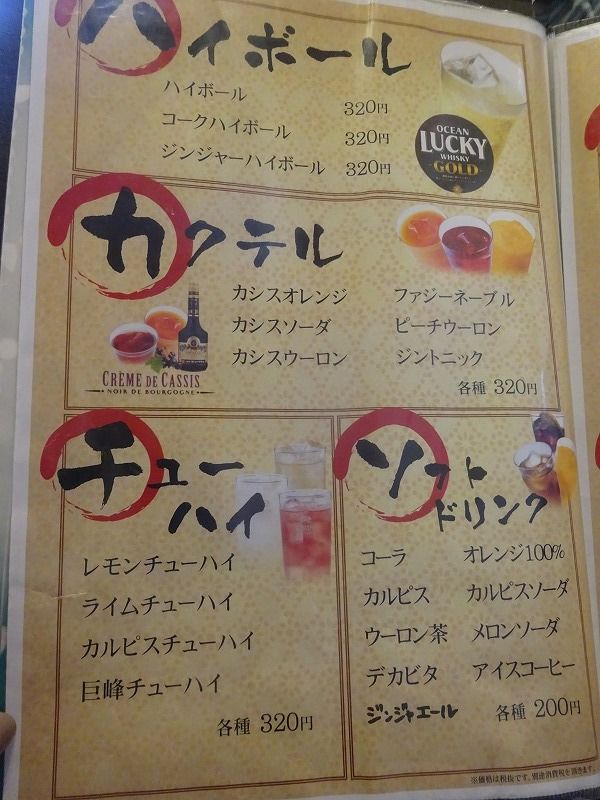 ハイボール
ハイボール 320円
コークハイボール 320円
ジンジャーハイボール 320円
OCEAN
LUCKY
WHISKY
GOLD
カクテル
カシスオレンジ ファジーネーブル
カシスソーダ ピーチウーロン
カシスウーロン ジントニック
各種 320円
CRÈME DE CASSIS
NOIR DE BOURGOGNE
チューハイ
レモンチューハイ
ライムチューハイ
カルピスチューハイ
巨峰チューハイ
各種 320円
ソフト
ドリンク
コーラ オレンジ100%
カルピス カルピスソーダ
ウーロン茶 メロンソーダ
デカビタ アイスコーヒー
ジンジャエール 各種 200円
※価格は税抜です。別途消費税を頂きます。